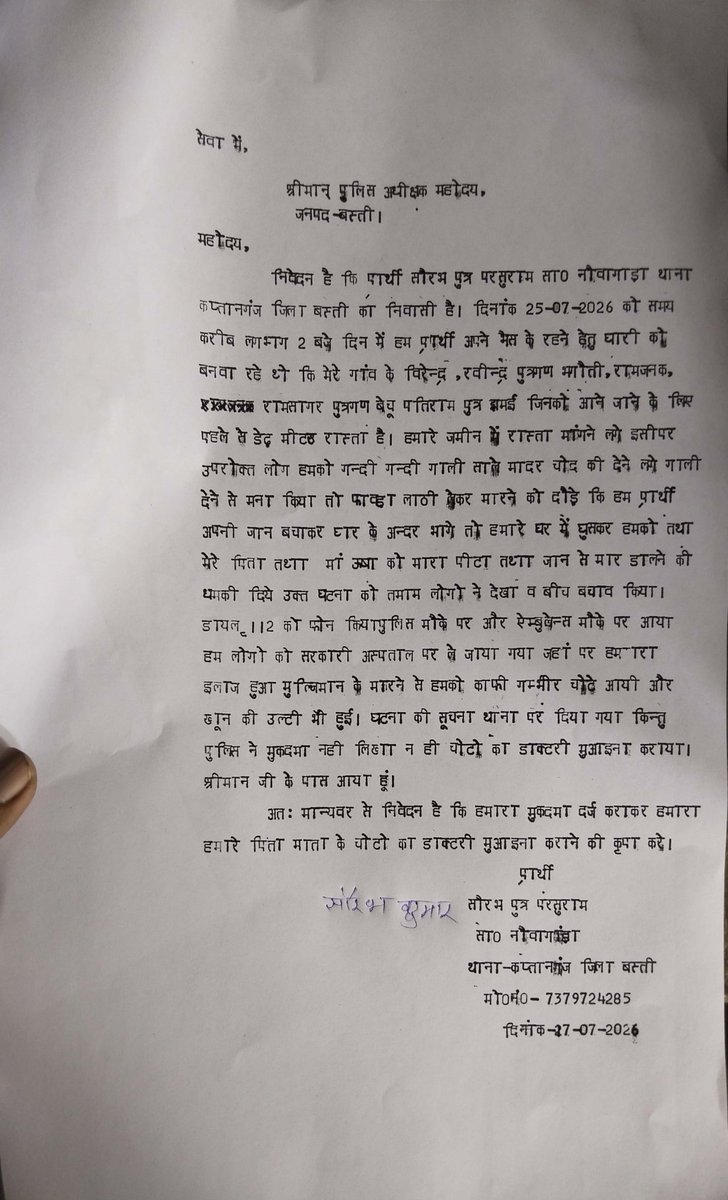 सेवा में,
श्रीमान् पुलिस अधीक्षक महोदय,
जनपद-बस्ती।
महोदय,
निवेदन है कि प्रार्थी सौरभ पुत्र परसुराम सा0 नौवागाड़ा थाना
कप्तानगंज जिला बस्ती का निवासी है। दिनांक 25-07-2026 को समय
करीब लगभाग 2 बजे दिन में हम प्रार्थी अपने भैस के रहने हेतु घारी को
बनवा रहे थे कि मेरे गांव के विरेन्द्र ,रवीन्द्र पुत्रगण भगौती,रामजनक,
रामसागर पुत्रगण बेचू पतिराम पुत्र जिनको आने जाने के लिए
पहले से डेढ़ मीटर रास्ता है। हमारे जमीन में रास्ता मांगने लगे इसीपर
उपरोक्त लोग हमको गन्दी गन्दी गाली साले मादर चोद की देने लगे गाली
देने से मना किया तो फावड़ा लाठी लेकर मारने को दौड़े कि हम प्रार्थी
अपनी जान बचाकर घर के अन्दर भागे तो हमारे घर में घुसकर हमको तथा
मेरे पिता तथा मां ऊषा को मारा पीटा तथा जान से मार डालने की
धमकी दिये उक्त घटना को तमाम लोगो ने देखा व बीच बचाव किया।
डायल 112 को फोन कियापुलिस मौके पर और ऐम्बुलेन्स मौके पर आया
हम लोगो को सरकारी अस्पताल पर ले जाया गया जहां पर हमारा
इलाज हुआ मुल्जिमान के मारने से हमको काफी गम्भीर चोटे आयी और
खून की उल्टी भी हुई। घटना की सूचना थाना पर दिया गया किन्तु
पुलिस ने मुकदमा नही लिखा न ही चोटो का डाक्टरी मुआइना कराया।
श्रीमान जी के पास आया हूं।
अतः मान्यवर से निवेदन है कि हमारा मुकदमा दर्ज कराकर हमारा
हमारे पिता माता के चोटो का डाक्टरी मुआइना कराने की कृपा करे।
प्रार्थी
सौरभ कुमार सौरभ पुत्र परसुराम
सा0 नौवागांडा
थाना-कप्तानगंज जिला बस्ती
मो0नं0- 7379724285
दिनांक-27-07-2026